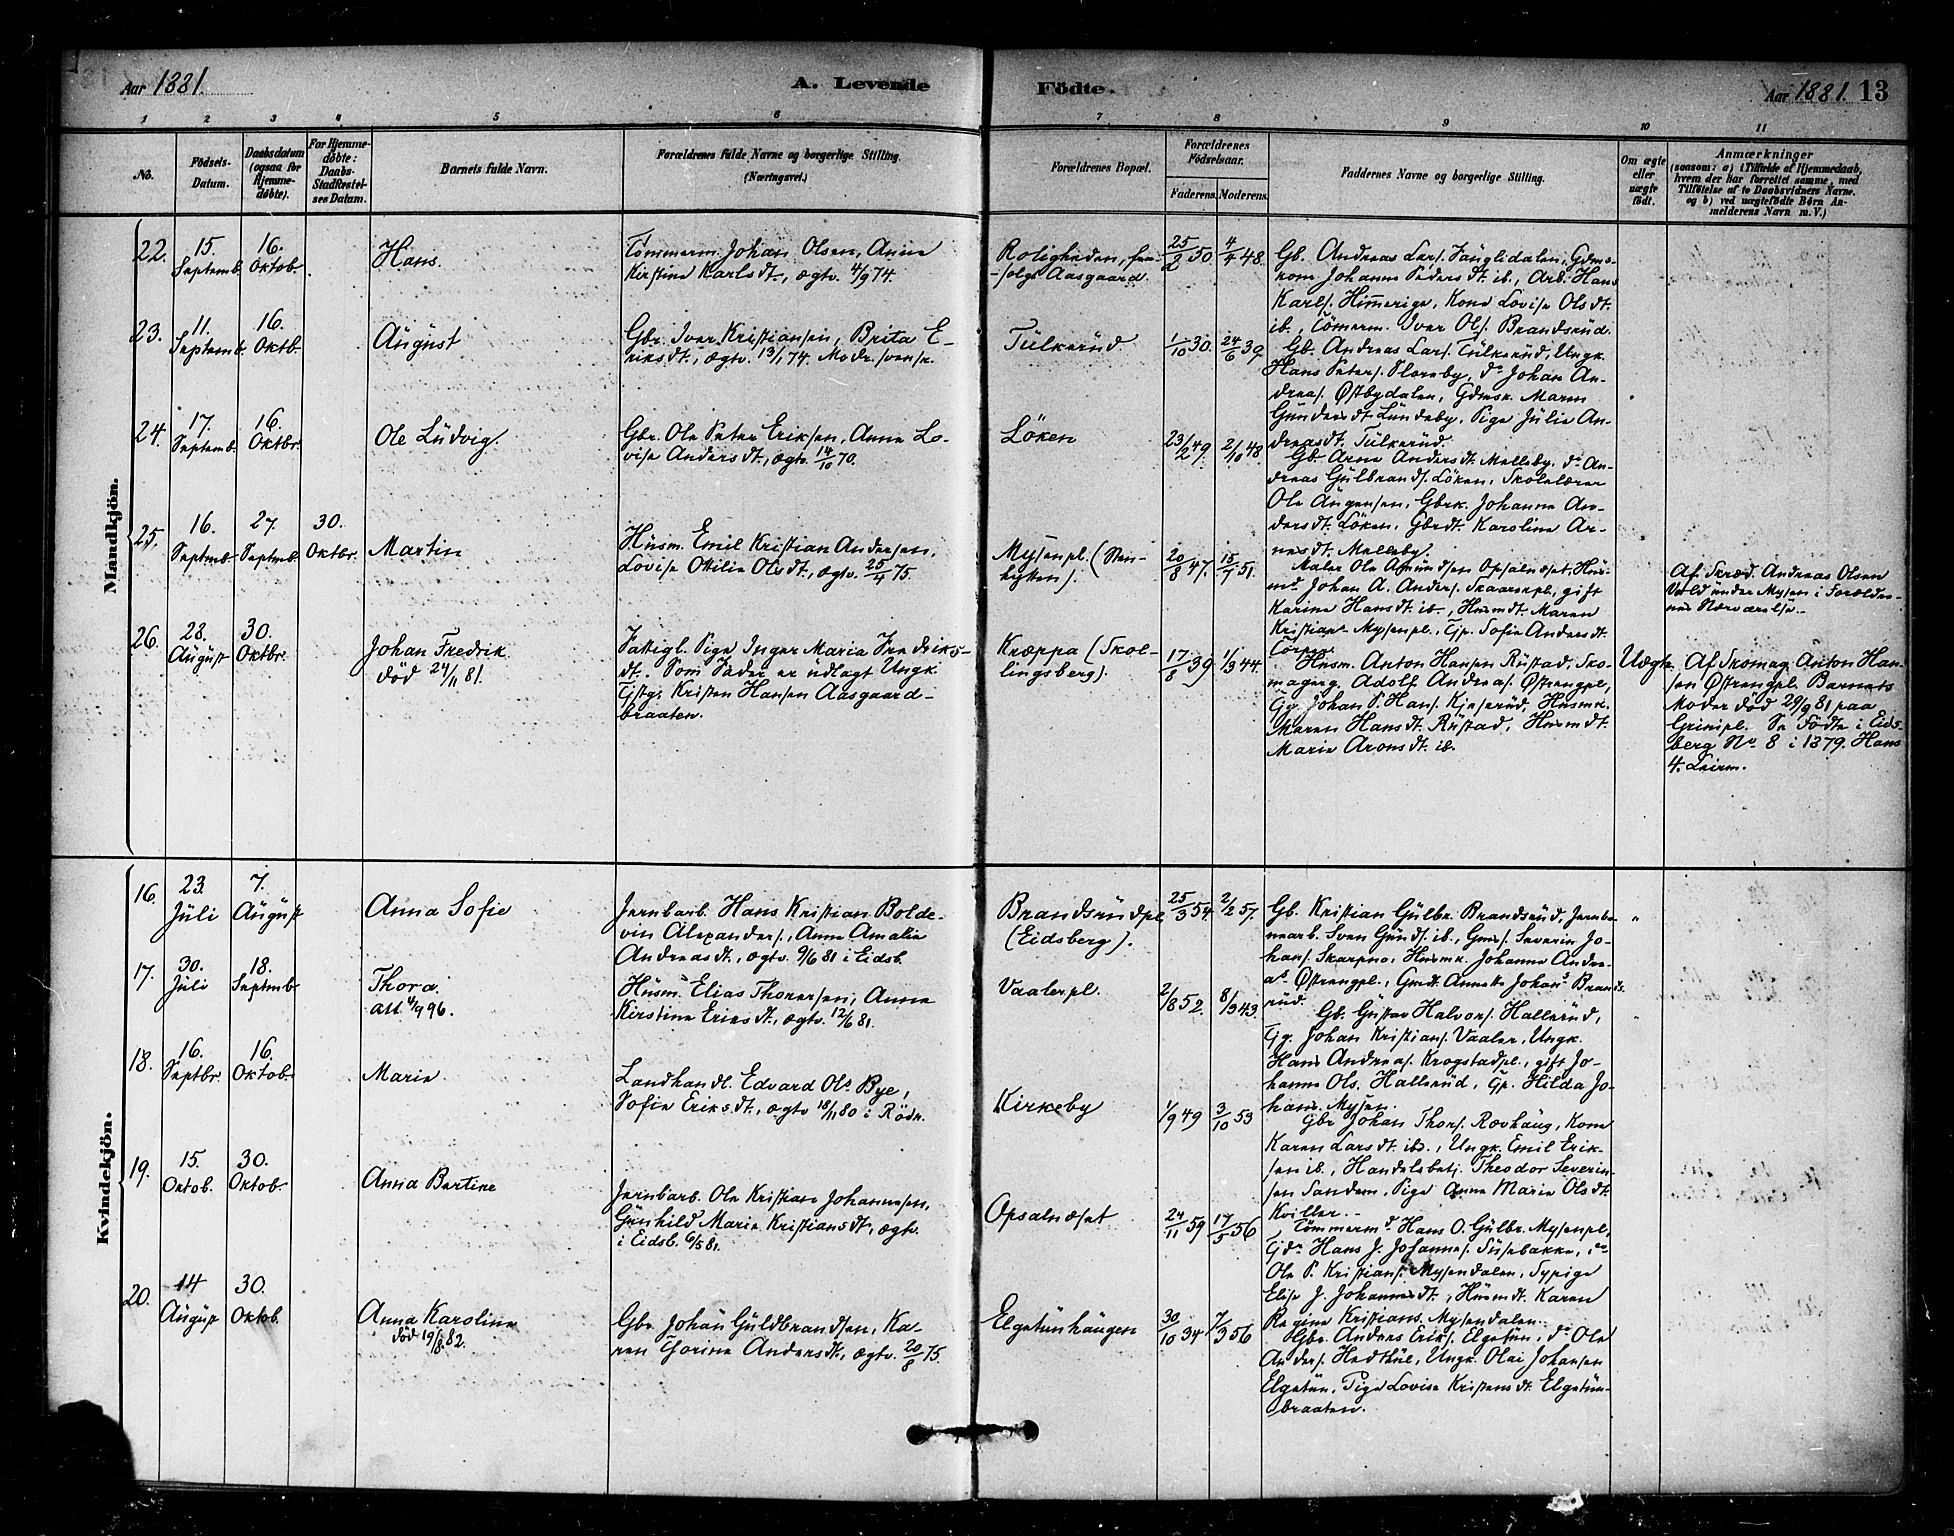 Aar 1881.
A. Levende
Födte.
Aar 1881. 13
1 2 3 4 5 6 7 8 9 10 11
No.
Födsels-
Datum.
Daabsdatum
(ogsaa for
Hjemme-
døbte).
For Hjemme-
døbte:
Daabs-
Stadfæstel-
ses Datum.
Barnets fulde Navn.
Forældrenes fulde Navne og borgerlige Stilling.
(Næringsvei.)
Forældrenes Bopæl.
Forældrenes
Födselsaar.
Faderens. Moderens.
Faddernes Navne og borgerlige Stilling.
Om ægte
eller
uægte
født.
Anmærkninger
(saasom: a) i Tilfælde af Hjemmedaab,
hvem der har forrettet samme, med
Tilföielse af to Daabsvidners Navne.
og b) ved uægtefödte Börn An-
melderens Navn m. V.)
Mandkjön.
22.
15.
Septemb.
16.
Oktob.
Hans.
Tömmerm. Johan Olsen, Anne
Kirstine Karlsdt., ægtv. 4/9 74.
Roligheden,
Aasgaard.
25/2 50
4/4 48
Gb. Andreas Lars.
Johanne Pedersdt. ib., Arb. Hans
Karls. Himmerige, Kone Lovise Olsdt.
ib., Tömerm. Iver Ols. Brandsrud.
23.
11.
Septemb.
16.
Oktb.
August
Gbr. Iver Kristiansen, Brita E-
riksdt., ægtv. 13/1 74. Modr. svensk.
Tülkerüd.
1/10 30.
24/6 39
Gb. Andreas Lars. Tülkerüd, Ungk.
Hans Peters. do Johan An-
dreas. Østbydalen, Gdmsk. Maren
Gundersdt. Lundeby, Pige Julie An-
dreasdt. Tülkerüd.
24.
17.
Septemb.
16.
Oktbr.
Ole Ludvig.
Gbr. Ole Peter Eriksen, Anne Lo-
vise Andersdt., ægtv. 14/10 70.
Löken
23/2 49
2/10 48
Gb. Arne Andersdt. Melleby, do An-
dreas Gülbrands. Löken, Skolelærer
Ole Aügensen, Gbrk. Johanne An-
dersdt. Löken, Gbrdt. Karoline Ar-
nesdt. Melleby.
25.
16.
Septmb.
27.
Septmb.
30.
Oktbr.
Martin
Husm. Emil Kristian Andersen,
Lovise Otilie Olsdt., ægtv. 25/4 75.
Mysenpl. (Sten-
hytten).
20/8 47.
15/7 51.
Maler Ole Amundsen Opsalnæset, Hus-
md. Johan A. Anders. Skaarenpl., gift
Karine Hansdt. ib., Husmdt. Maren
Kristians. Mysenpl., Tjp. Sofie Andersdt.
Torper.
Af Skræd. Andreas Olsen
Vold under Mysen i Forældre-
nes Nærværelse.
26.
28.
August
30.
Oktbr.
Johan Fredrik
død 24/11 81.
Fattigl. Pige Inger Maria Fredriks-
dt. Som Fader er udlagt Ungk.
Tjstg. Kristen Hansen Aasgaard-
braaten.
Kræppa (Skol-
lingsberg).
17/8 39
1/3 44.
Husm. Anton Hansen Rüstad, Sko-
magerg. Adolf Andreas. Østrengpl.,
Tjg. Johan P. Hans. Kjeserüd, Husmk.
Maren Hansdt. Rüstad, Husmdt.
Marie Aronsdt. ib.
Uægte.
Af Skomag. Anton Han-
sen Østrengpl. Barnets
Moder död 29/9 81 paa
Grinipl. Se Födte i Eids-
berg No. 8 i 1879. Hans
4. Leirm.
Kvindekjön.
16.
23.
Juli
7.
August
Anna Sofie
Jernbarb. Hans Kristian Bolde-
vin Alexanders., Anne Amalie
Andreasdt., ægtv. 9/6 81 i Eidsb.
Brandsrüdpl.
(Eidsberg).
25/3 54.
2/2 57.
Gb. Kristian Gülbr. Brandsrüd, Jernba-
nearb. Sven Gunds. ib., Gms. Severin Jo-
hans. Skarpno, Husmk. Johanne Andre-
as. Østrengpl., Gmdt. Annette Johans. Brands-
rüd.
17.
30.
Juli
18.
Septmb
Thora.
att. 4/9 96.
Husm. Elias Thoresen, Anne
Kirstine Eriksdt., ægtv. 12/6 81.
Vaalerpl.
2/8 52.
8/9 43.
Gb. Gustav Halvors. Hallerüd,
Tjg. Johan Kristians. Vaaler, Ungk.
Hans Andreas. Krogstadpl., gift Jo-
hanne Ols. Hallerüd, Tjp. Hilda Jo-
hans. Mysen.
18.
16.
Septbr.
16.
Oktob.
Marie
Landhandl. Edvard Ols. Bye,
Sofie Eriksdt., ægtv. 18/11 80 i Rödn.
Kirkeby
1/9 49
3/10 53
Gbr. Johan Thors. Rovhaug, Kone
Karen Larsdt. ibd., Ungk. Emil Erik-
sen ib., Handelsbetj. Theodor Severin-
sen Sandem, Pige Anne Marie Olsdt.
Kviller.
19.
15.
Oktob.
30.
Oktob.
Anna Bertine
Jernbarb. Ole Kristian Johannesen,
Günhild Marie Kristiansdt., ægtv.
i Eidsb. 6/5 81.
Opsalnæset
24/11 59
17/5 56
Tömmermd. Hans O. Gülbr. Mysenpl.,
Tjdr. Hans J. Johannes. Tüsebakke,
Ole P. Kristians. Mysendalen, Sypige
Elise J. Johannesdt., Husmdt. Karen
Regine Kristians. Mysendalen.
20.
14
August
30.
Oktob.
Anna Karoline
död 19/8 82.
Gbr. Johan Güldbrandsen, Ka-
ren Thorine Andersdt., ægtv. 20/8 75.
Elgetünhaugen
30/10 34
7/3 56
Gbr. Anders Eriks. Elgetün, do Ole
Anders. Hedthül, Ungk. Olai Johansen
Elgetün, Pige Lovise Kristensdt. Elgetün-
braaten.